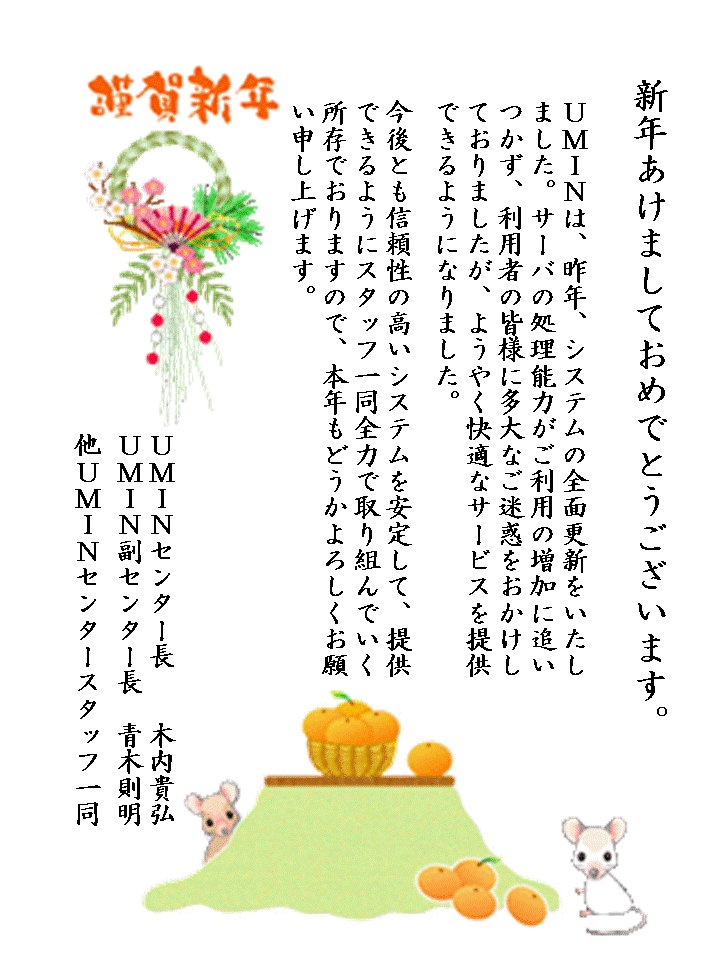 新年あけましておめでとうございます。
UMINは、昨年、システムの全面更新をいたし
ました。サーバの処理能力がご利用の増加に追い
つかず、利用者の皆様に多大なご迷惑をおかけし
ておりましたが、ようやく快適なサービスを提供
できるようになりました。
今後とも信頼性の高いシステムを安定して、提供
できるようにスタッフ一同全力で取り組んでいく
所存でおりますので、本年もどうかよろしくお願
い申し上げます。
謹賀新年
UMINセンター長 木内貴弘
UMIN副センター長 青木則明
他UMINセンタースタッフ一同